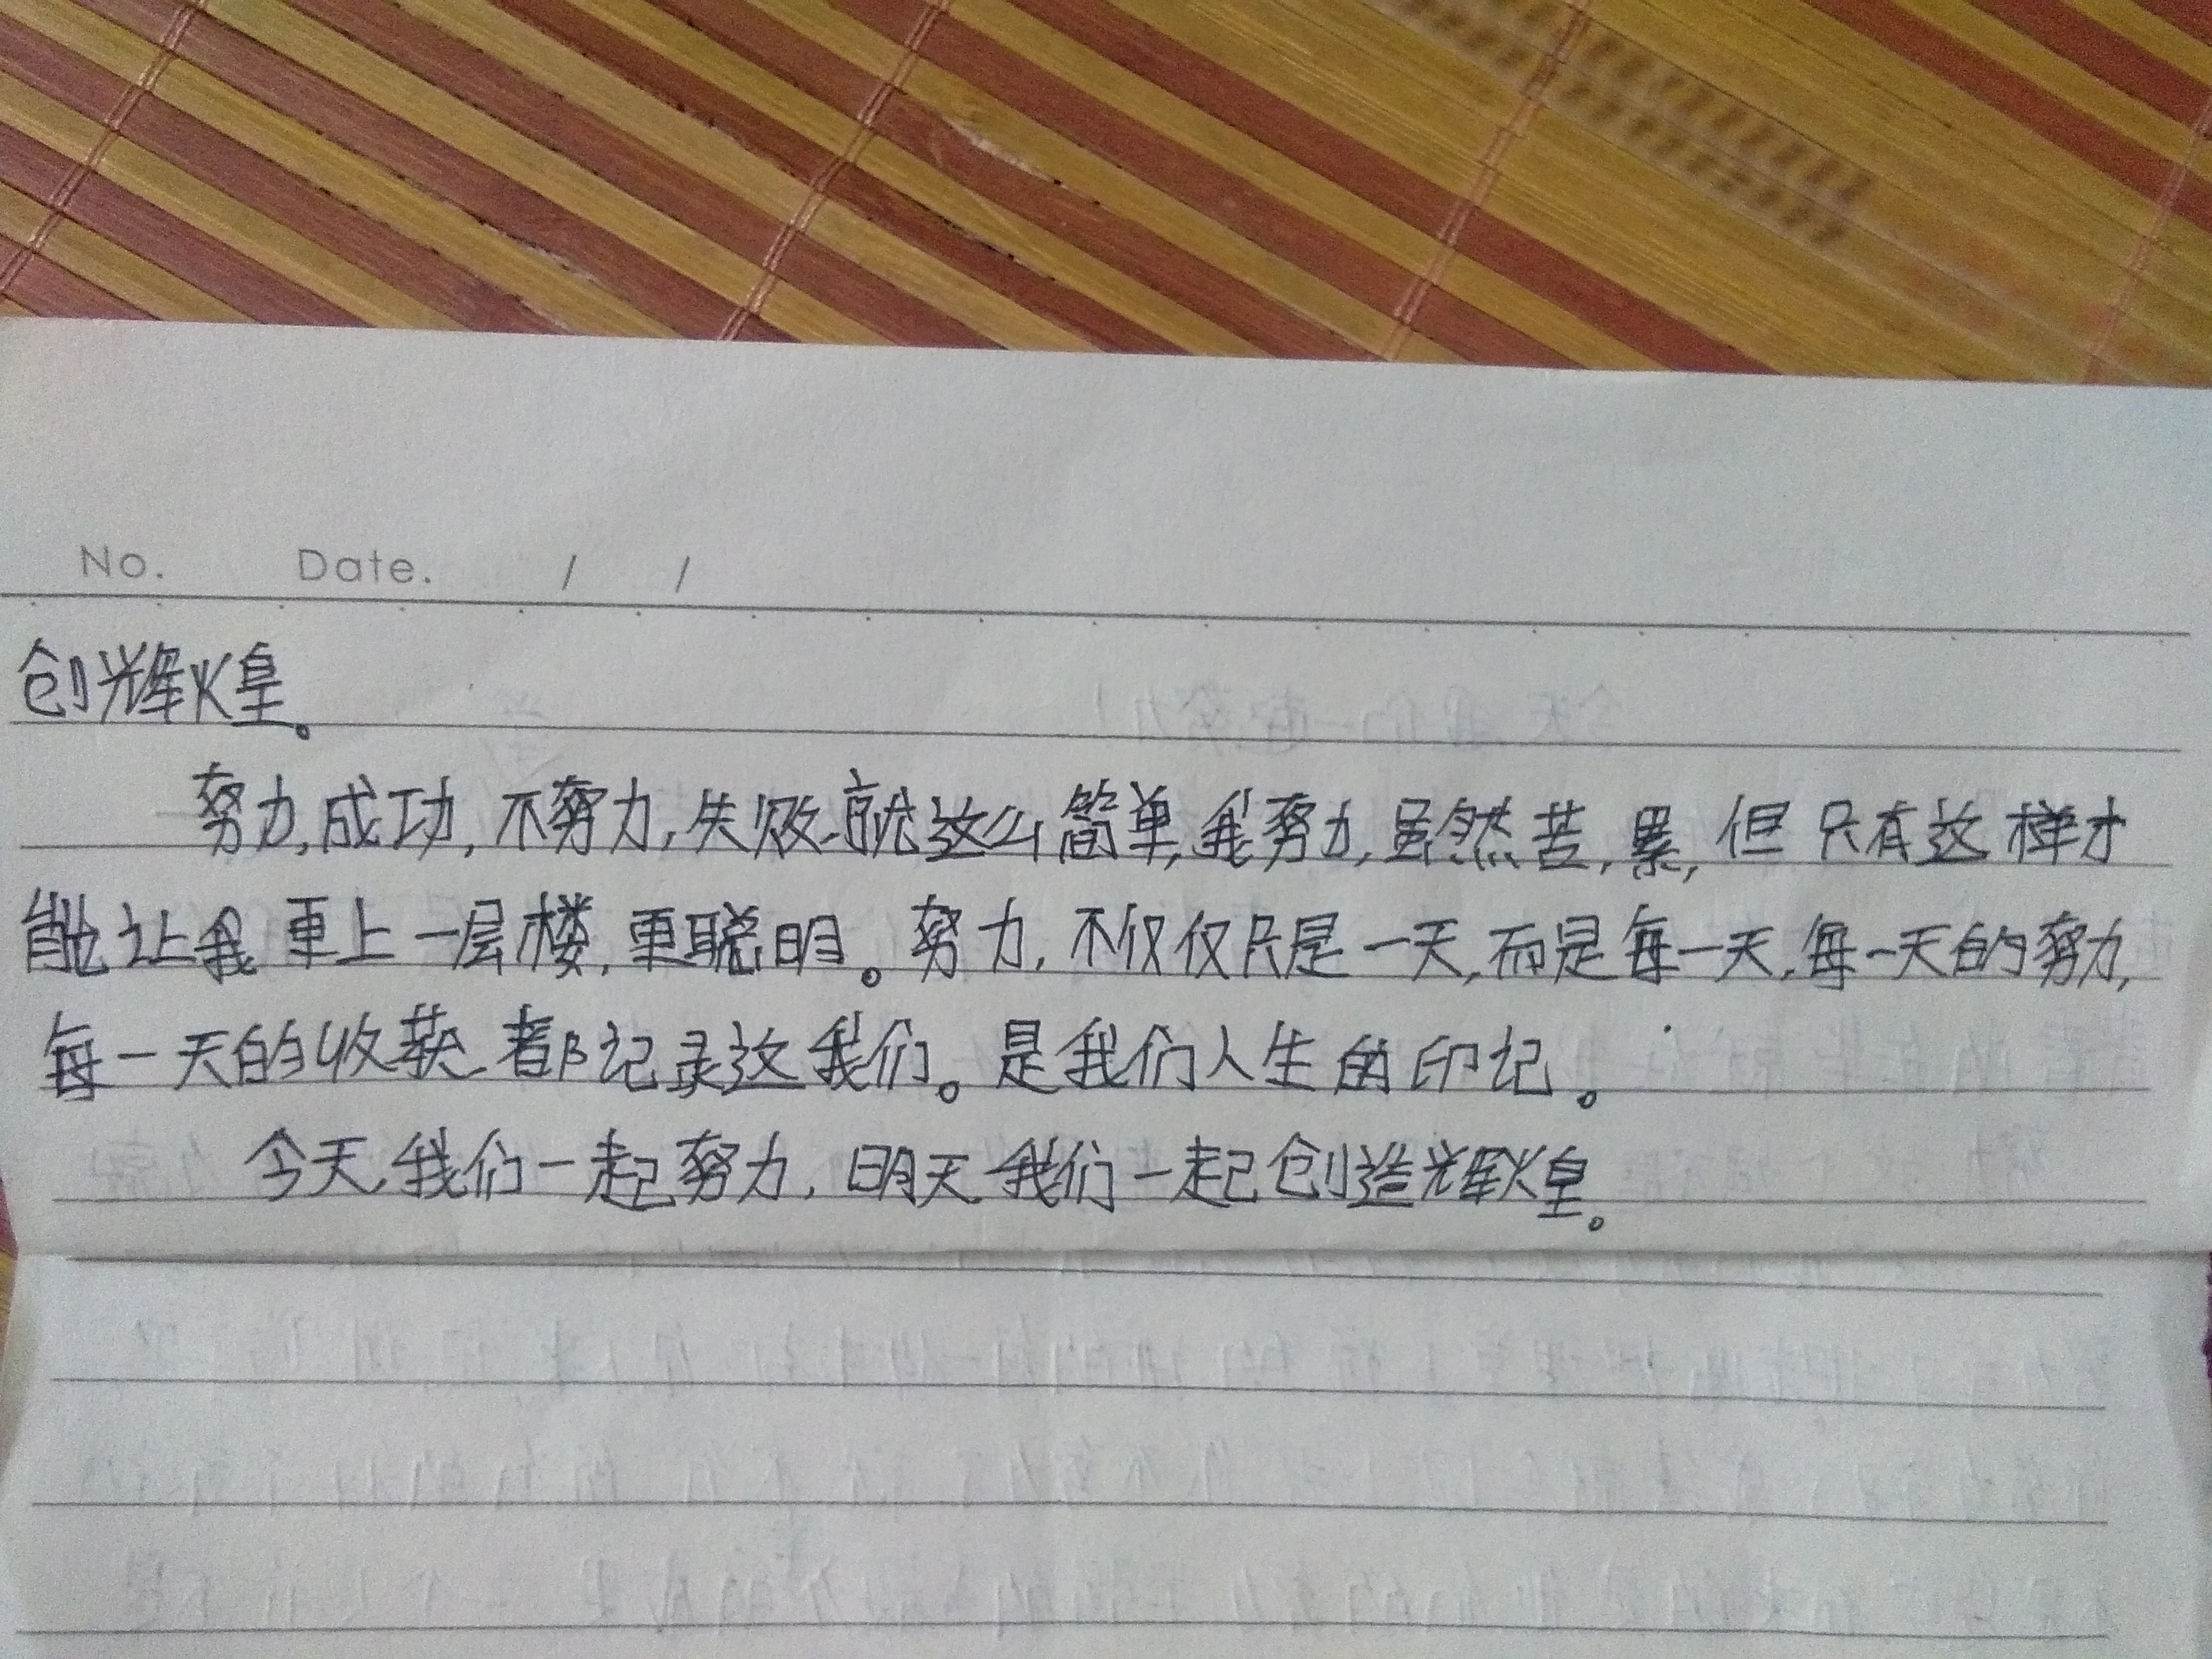 No. Date. / /
创辉煌。
努力,成功,不努力,失败,就这么简单,我努力,虽然苦,累,但只有这样才
能让我更上一层楼,更聪明。努力,不仅仅只是一天,而是每一天,每一天的努力,
每一天的收获,都记录这我们。是我们人生的印记。
今天,我们一起努力,明天我们一起创造辉煌。